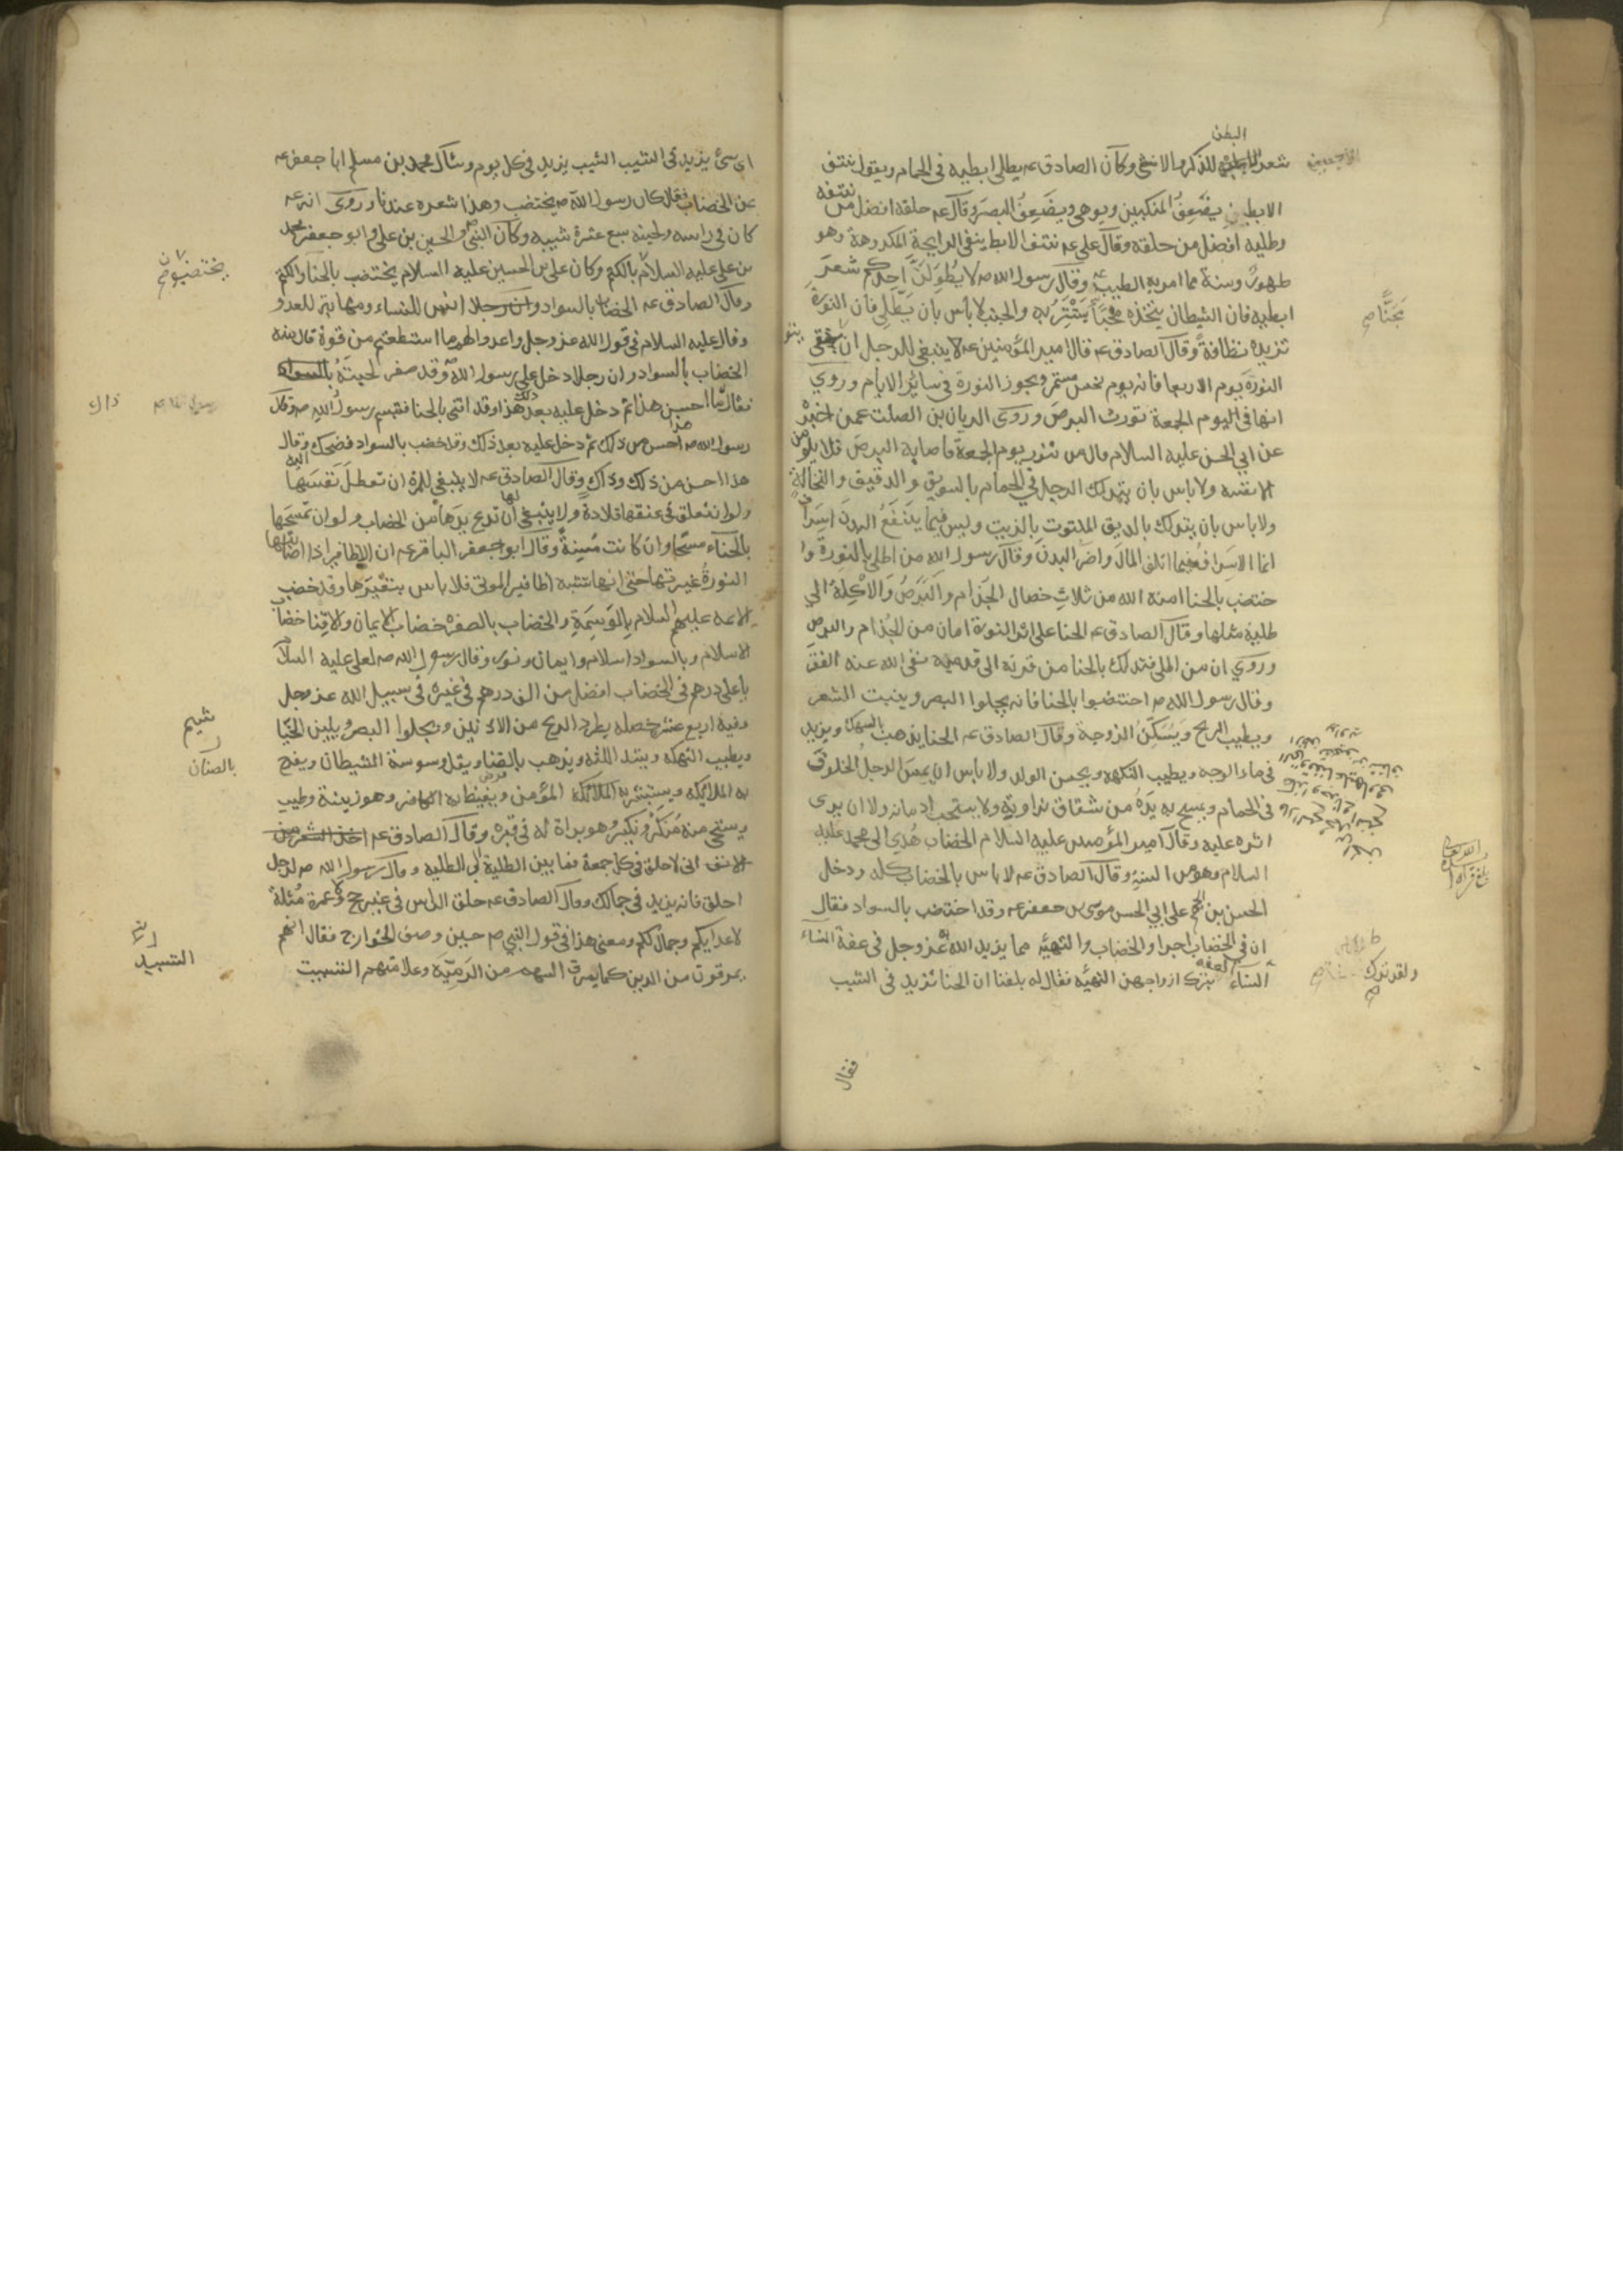 البطن
شعر للذكر والانثى وكان الصادق عه يطلى ابطيه فى الحمام ويقول نتف
الابطين يضعف المنكبين ويوهى ويضعف البصر وقال عه حلقه افضل من نتفه
وطليه افضل من حلقه وقال على عه نتف الابط ينفى الرايحة المكروهة وهو
طهور وسنة مما امر به الطيب عه وقال رسول الله صه لا يطولن احدكم شعر
ابطيه فان الشيطان يتخذه مخبأ يستتر به والجنب لا بأس بان يطلى فان النورة
تزيده نظافة وقال الصادق عه قال امير المؤمنين عه لا ينبغى للرجل ان يتوقى
النورة يوم الاربعا فانه يوم نحس مستمر ويجوز النورة فى سائر الايام وروى
انها فى اليوم الجمعة تورث البرص وروى الريان بن الصلت عمن اخبره
عن ابى الحسن عليه السلام قال من تنور يوم الجمعة فاصابه البرص فلا يلومن
الا نفسه ولا باس بان يتدلك الرجل فى الحمام بالسويق والدقيق والنخالة
ولا باس بان يتدلك بالدقيق الملتوت بالزيت وليس فيما ينفع البدن اسراف
انما الاسراف فيما اتلف المال واضر البدن وقال رسول الله من اطلى بالنورة وا
ختضب بالحنا امنه الله من ثلاث خصال الجذام والبرص والاكلة الى
طلية مثلها وقال الصادق عه الحنا على اثر النورة امان من الجذام والبرص
وروى ان من اطلى فتدلك بالحنا من قرنه الى قدميه نفى الله عنه الفقر
وقال رسول الله صه اختضبوا بالحنا فانه يجلوا البصر وينبت الشعر
ويطيب الريح ويسكن الزوجة وقال الصادق عه الحنا يذهب بالسهك ويزيد
فى ماء الوجه ويطيب النكهه ويحسن الولد ولا باس ان يمس الرجل الخلوق
فى الحمام ويمسح به يده من شقاق يداويه ولا يستحب ادمانه ولا ان يرى
اثره عليه وقال امير المؤمنين عليه السلام الخضاب هدى الى محمد عليه
السلام وهو من السنة وقال الصادق عه لا باس بالخضاب كله ودخل
الحسن بن الجهم على ابى الحسن موسى بن جعفر عه وقد اختضب بالسواد فقال
ان فى الخضاب اجرا والخضاب والتهيئه مما يزيد الله عز وجل فى عفة النساء
النساء العفه بترك ازواجهن التهيئه فقال له بلغنا ان الحنا تزيد فى الشيب
فقال
ولقد ترك
اى شئ يزيد فى الشيب الشيب يزيد فى كل يوم وسأل محمد بن مسلم ابا جعفر عه
عن الخضاب فقال كان رسول الله صه يختضب وهذا شعره عندنا وروى انه عه
كان فى راسه ولحيته سبع عشرة شيبه وكان النبى والحسين بن على وابو جعفر محمد
بن على عليه السلام بالكتم وكان على بن الحسين عليه السلام يختضب بالحنا والكتم
وقال الصادق عه الخضاب بالسواد انس للنساء ومهابة للعدو
وقال عليه السلام فى قول الله عز وجل واعدوا لهم ما استطعتم من قوة قال منه
الخضاب بالسواد وان رجلا دخل على رسول الله وقد صفر لحيته
فقال ما احسن هذا ثم دخل عليه بعد هذا وقد اقنى بالحنا فتبسم رسول الله صه وقال
هذا
رسول الله صه احسن من ذلك ثم دخل عليه بعد ذلك وقد خضب بالسواد فضحك اليه وقال
هذا احسن من ذلك وذاك وقال الصادق عه لا ينبغى للمرءة ان تعطل نفسها
ولو ان تعلق فى عنقها قلادة ولا ينبغى لها ان تدع يدها من الخضاب ولو ان تمسحها
بالحناء مسحا وان كانت مسنة وقال ابو جعفر الباقر عه ان الاظافير اذا اصابتها
النورة غيرتها حتى انها تشبه اظافير الموتى فلا باس بتغييرها وقد خضب
الايمه عليهم السلام بالوسمة والخضاب بالصفره خضاب الايمان والاقنا خضاب
الاسلام وبالسواد اسلام وايمان ونور وقال رسول الله صه لعلى عليه السلام
يا على درهم فى الخضاب افضل من الف درهم فى غيره فى سبيل الله عز وجل
وفيه اربع عشر خصله يطرد الريح من الاذنين ويجلوا البصر ويلين الخيا
ويطيب النكهه ويشد اللثه ويذهب بالضنا ويقل وسوسة الشيطان ويفرح
به الملايكه ويستبشر به المؤمن ويغيظ به الكافر وهو زينة وطيب
ويستحى منه منكر ونكير وهو براة له فى قبره وقال الصادق عه اخذ الشعر من
الانف انى لاحلق فى كل جمعة فما بين الطلية الى الطليه وقال رسول الله صه لرجل
احلق فانه يزيد فى جمالك وقال الصادق عه حلق الراس فى غير حج ولا عمرة مثلة
لاعدايكم وجمال لكم ومعنى هذا فى قول النبى صه حين وصف الخوارج فقال انهم
يمرقون من الدين كما يمرق السهم من الرمية وعلامتهم التسبيت
يختضبون
ذاك
شيم
بالصنان
التسبيد